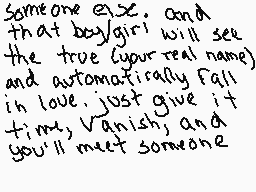 someone else. and
that boy/girl will see
the true (your real name)
and automatically fall
in love. just give it
time, Vanish, and
you'll meet someone